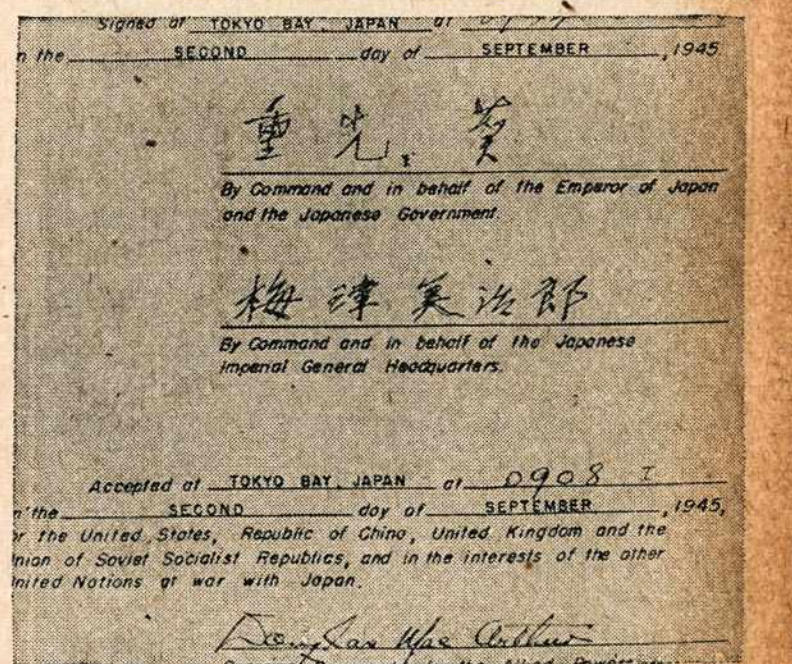 Signed at TOKYO BAY, JAPAN at
n the SECOND day of SEPTEMBER, 1945
重光 葵
By Command and in behalf of the Emperor of Japan
and the Japanese Government.
梅津美治郎
By Command and in behalf of the Japanese
Imperial General Headquarters.
Accepted at TOKYO BAY, JAPAN at 0908 I
n the SECOND day of SEPTEMBER, 1945,
or the United States, Republic of China, United Kingdom and the
nion of Soviet Socialist Republics, and in the interests of the other
nited Nations at war with Japan.
Douglas MacArthur